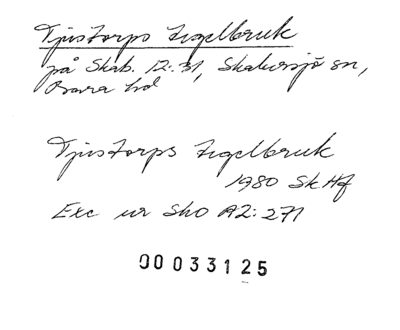 Tjustorps tegelbruk
på Skab. 12:31, Skabersjö sn,
Bara hd
Tjustorps tegelbruk
1980 Sk Hf
Exc ur Sho A2:271
00033125